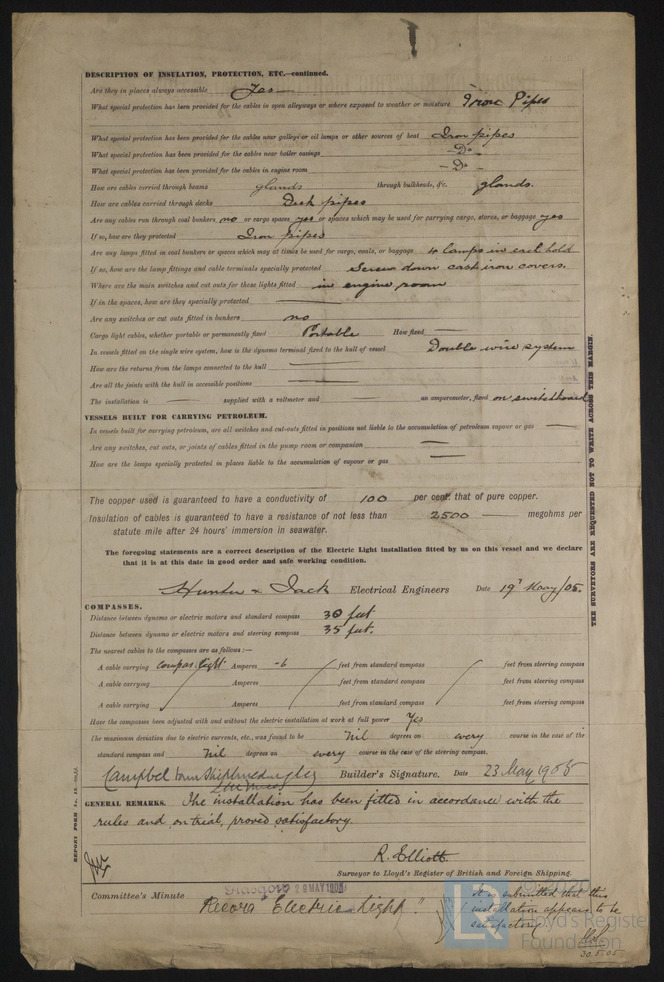 DESCRIPTION OF INSULATION, PROTECTION, ETC.—continued.
Are they in places always accessible Yes
What special protection has been provided for the cables in open alleyways or where exposed to weather or moisture Iron Pipes
What special protection has been provided for the cables near galleys or oil lamps or other sources of heat Iron pipes
What special protection has been provided for the cables near boiler casings —Do—
What special protection has been provided for the cables in engine room —Do—
How are cables carried through beams glands through bulkheads, &c. glands.
How are cables carried through decks Deck pipes
Are any cables run through coal bunkers no or cargo spaces yes or spaces which may be used for carrying cargo, stores, or baggage yes
If so, how are they protected Iron pipes
Are any lamps fitted in coal bunkers or spaces which may at times be used for cargo, coals, or baggage 4 lamps in each hold
If so, how are the lamp fittings and cable terminals specially protected Screw down cast iron covers.
Where are the main switches and cut outs for these lights fitted in engine room
If in the spaces, how are they specially protected —
Are any switches or cut outs fitted in bunkers no
Cargo light cables, whether portable or permanently fixed Portable How fixed —
In vessels fitted on the single wire system, how is the dynamo terminal fixed to the hull of vessel Double wire system
How are the returns from the lamps connected to the hull —
Are all the joints with the hull in accessible positions —
The installation is — supplied with a voltmeter and — an amperemeter, fixed on switchboard
VESSELS BUILT FOR CARRYING PETROLEUM.
In vessels built for carrying petroleum, are all switches and cut-outs fitted in positions not liable to the accumulation of petroleum vapour or gas —
Are any switches, cut outs, or joints of cables fitted in the pump room or companion —
How are the lamps specially protected in places liable to the accumulation of vapour or gas —
The copper used is guaranteed to have a conductivity of 100 per cent. that of pure copper.
Insulation of cables is guaranteed to have a resistance of not less than 2500 — megohms per
statute mile after 24 hours' immersion in seawater.
The foregoing statements are a correct description of the Electric Light installation fitted by us on this vessel and we declare
that it is at this date in good order and safe working condition.
Hunter & Jack Electrical Engineers Date 19 May/05.
COMPASSES.
Distance between dynamo or electric motors and standard compass 30 feet
Distance between dynamo or electric motors and steering compass 35 feet.
The nearest cables to the compasses are as follows:—
A cable carrying compass light Amperes .6 feet from standard compass feet from steering compass
A cable carrying Amperes feet from standard compass feet from steering compass
A cable carrying Amperes feet from standard compass feet from steering compass
Have the compasses been adjusted with and without the electric installation at work at full power Yes
The maximum deviation due to electric currents, etc., was found to be Nil degrees on every course in the case of the
standard compass and Nil degrees on every course in the case of the steering compass.
Campbeltown Shipbuilding Co Builder's Signature. Date 23 May 1905
GENERAL REMARKS. The installation has been fitted in accordance with the
rules and on trial, proved satisfactory.
R. Elliott.
Surveyor to Lloyd's Register of British and Foreign Shipping.
Committee's Minute Glasgow 29 MAY 1905
Record "Electric Light"
It is submitted that this
installation appears to be
satisfactory
30.5.05
THE SURVEYORS ARE REQUESTED NOT TO WRITE ACROSS THIS MARGIN.
LR
Lloyd's Register
Foundation